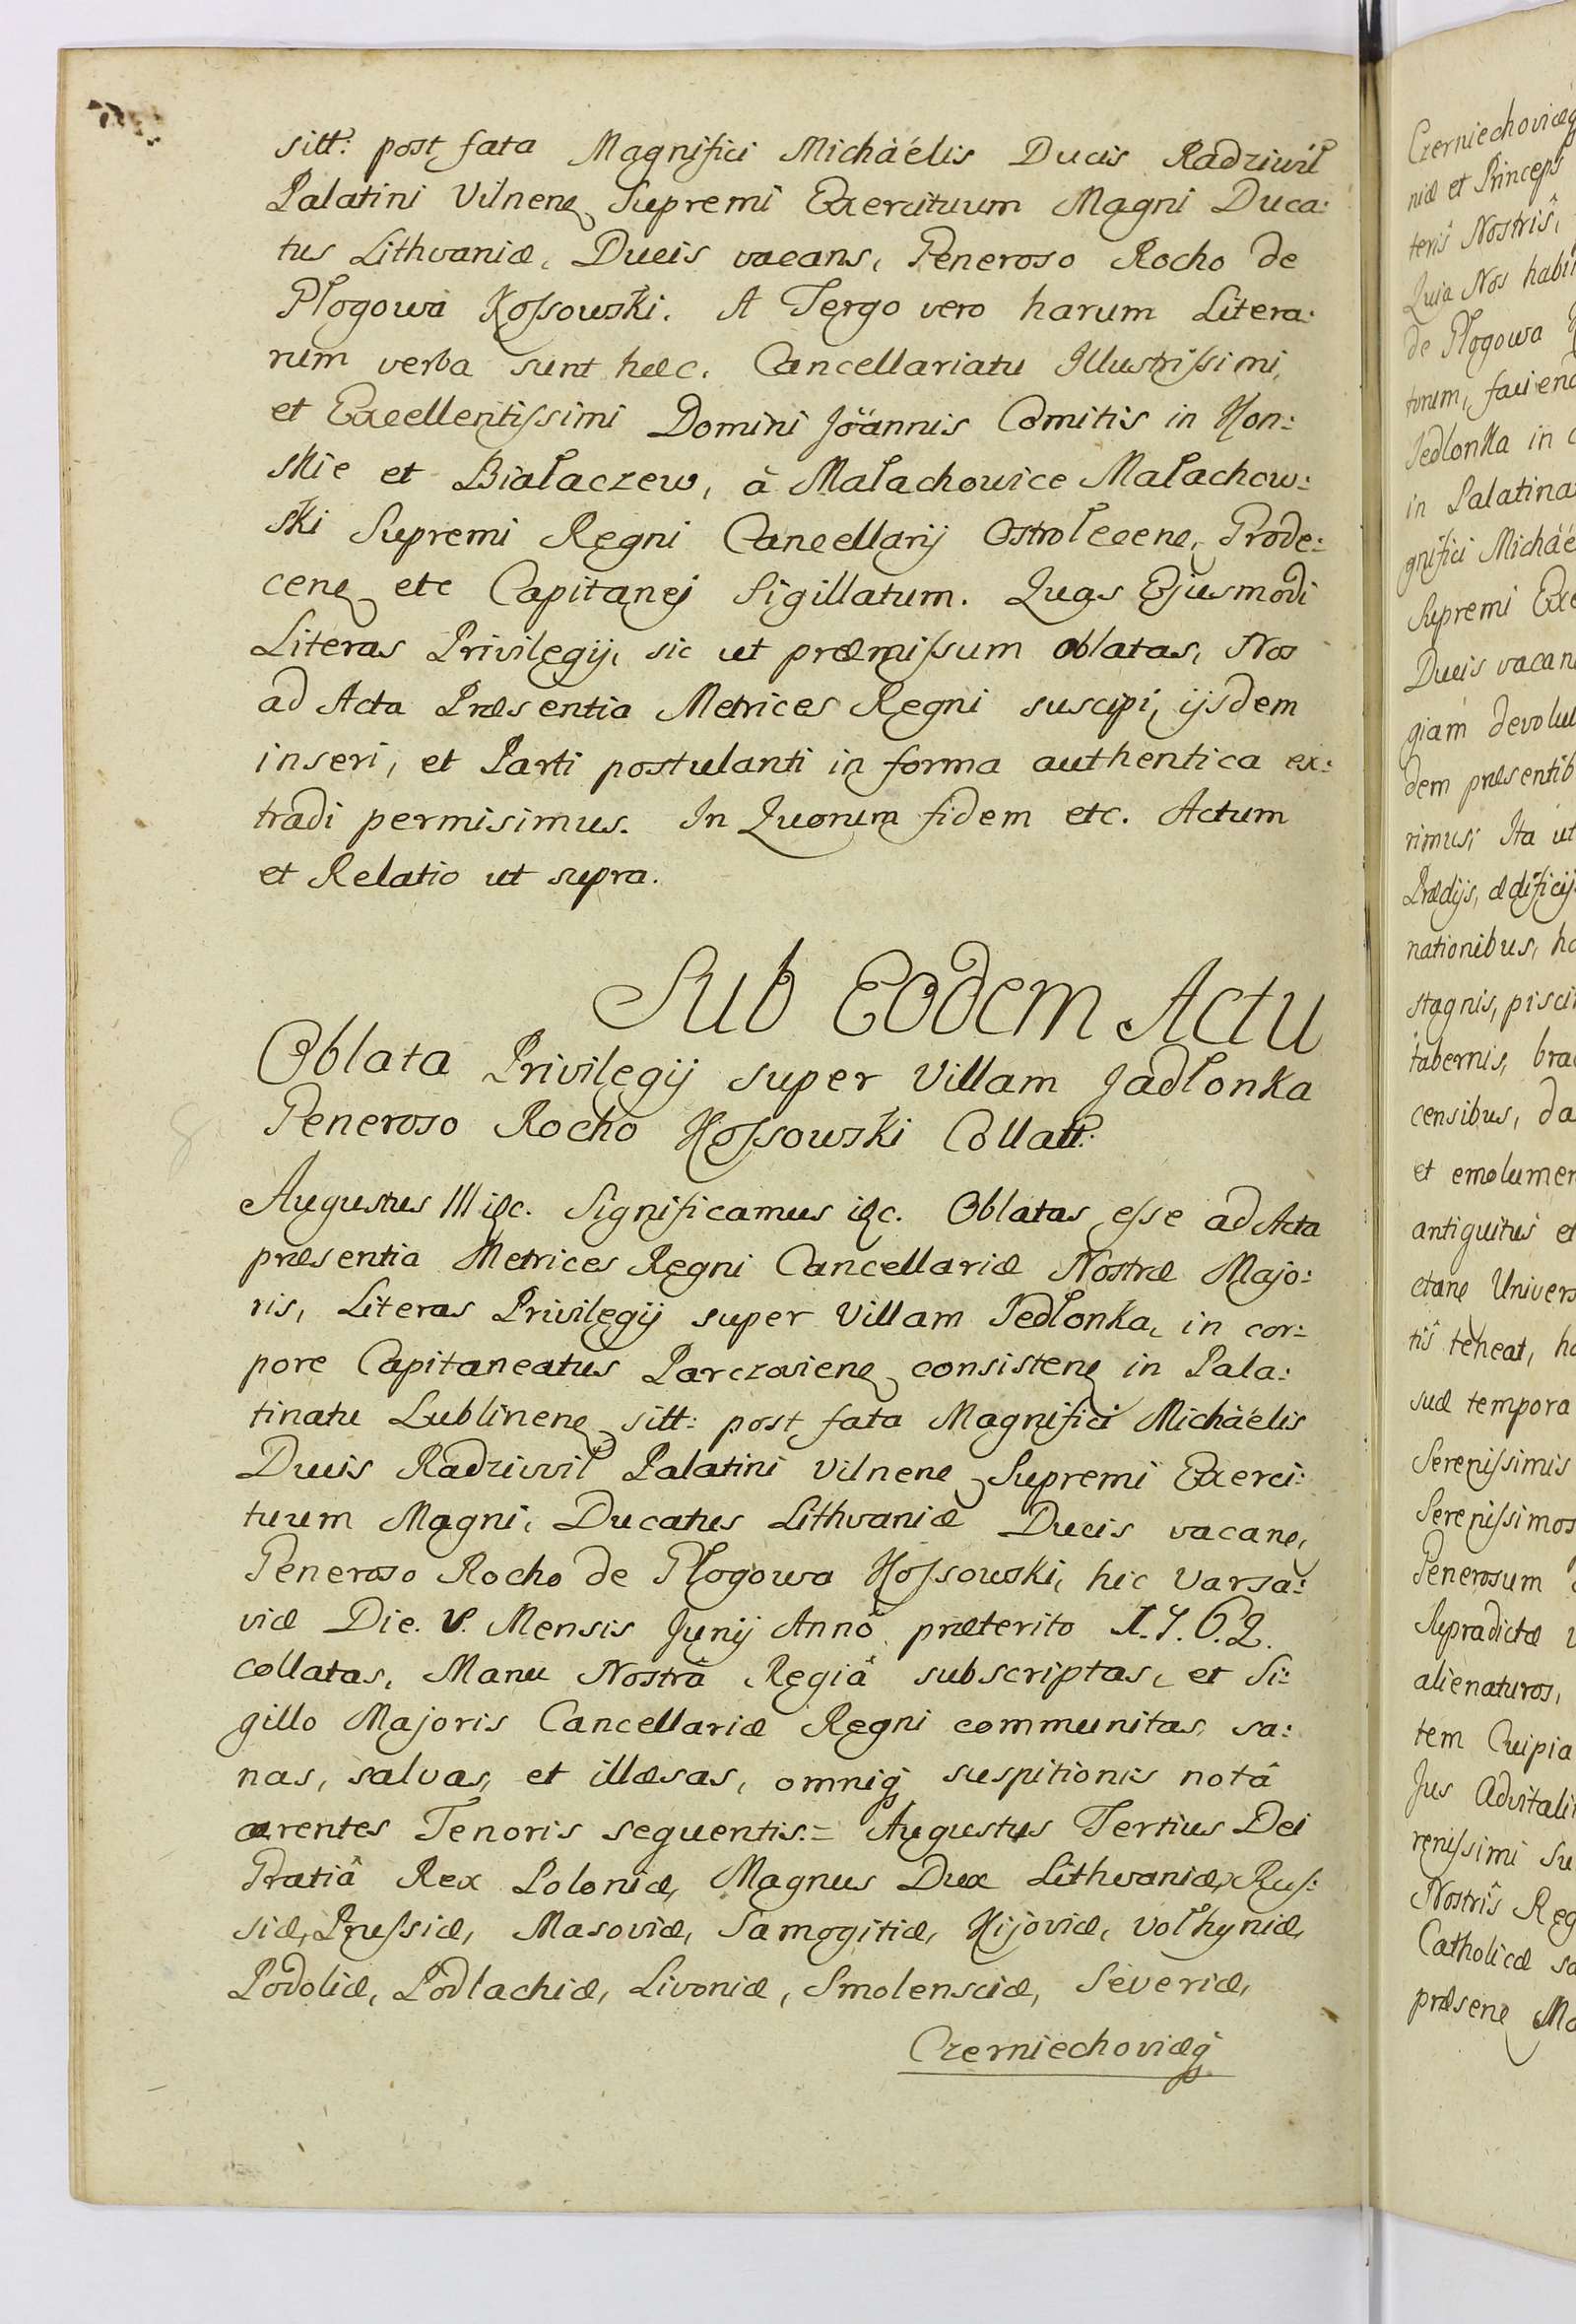 sitt: post fata Magnifici Michäélis Ducis Radziwił
Palatini Vilnenẽ Supremi Exercituum Magni Duca:
tus Lithvaniæ, Ducis vacans, Generoso Rocho de
Głogowa Kossowski. A Tergo vero harum Litera:
rum verba sunt hæc. Cancellariatu Illustrissimi,
et Excellentissimi Domini Jöannis Comitis in Kon:
skie et Białaczew, à Małachowice Małachow:
ski Supremi Regni Cancellarij Ostrołecenẽ, Grode:
cenẽ etc Capitanej Sigillatum. Quas Ejusmodi
Literas Privilegij, sic ut præmissum oblatas, Nos
ad Acta Præsentia Metrices Regni suscipi, ijsdem
inseri, et Parti postulanti in forma authentica ex:
tradi permisimus. In Quorum fidem etc. Actum
et Relatio ut supra.
Sub Eodem Actu
Oblata Privilegij super Villam Jadłonka
Generoso Rocho Kossowski Collatt:
Augustus III etc. Significamus etc. Oblatas esse ad Acta
præsentia Metrices Regni Cancellariæ Nostræ Majo:
ris, Literas Privilegij super Villam Jedłonka, in cor:
pore Capitaneatus Parczovienẽ consistenẽ in Pala:
tinatu Lublinenẽ sitt: post fata Magnifici Michäélis
Ducis Radziwił Palatini Vilnenẽ Supremi Exerci:
tuum Magni, Ducatus Lithvaniæ Ducis vacanẽ,
Generoso Rocho de Głogowa Kossowski, hic Varsa:
viæ Die. V. Mensis Junij Annô præterito 1.7.6.2.
collatas, Manu Nostrâ Regiâ subscriptas, et Si:
gillo Majoris Cancellariæ Regni communitas, sa:
nas, salvas, et illæsas, omniq́ suspitionis notâ
carentes Tenoris sequentis.= Augustus Tertius Dei
Gratiâ Rex Poloniæ, Magnus Dux Lithvaniæ, Rus:
siæ, Prussiæ, Masoviæ, Samogitiæ, Kijoviæ, Vołhyniæ,
Podoliæ, Podlachiæ, Livoniæ, Smolensciæ, Severiæ,
Czerniechoviæq́
Czerniechoviæq
niæ et Princeps
teris Nostris,
Quia Nos
de Głogowa
torum,
Jedlonka in
in
Supremi
Ducis
dem
rimus, Ita ut
Prædijs,
nationibus,
stagnis,
tabernis,
censibus,
et
antiquitus
teneat,
suæ tempora
Serenissimis
Serenissimos
Generosum
Supradictæ
alienaturos,
tem
Jus
Nostris
Catholicæ
præsenẽ